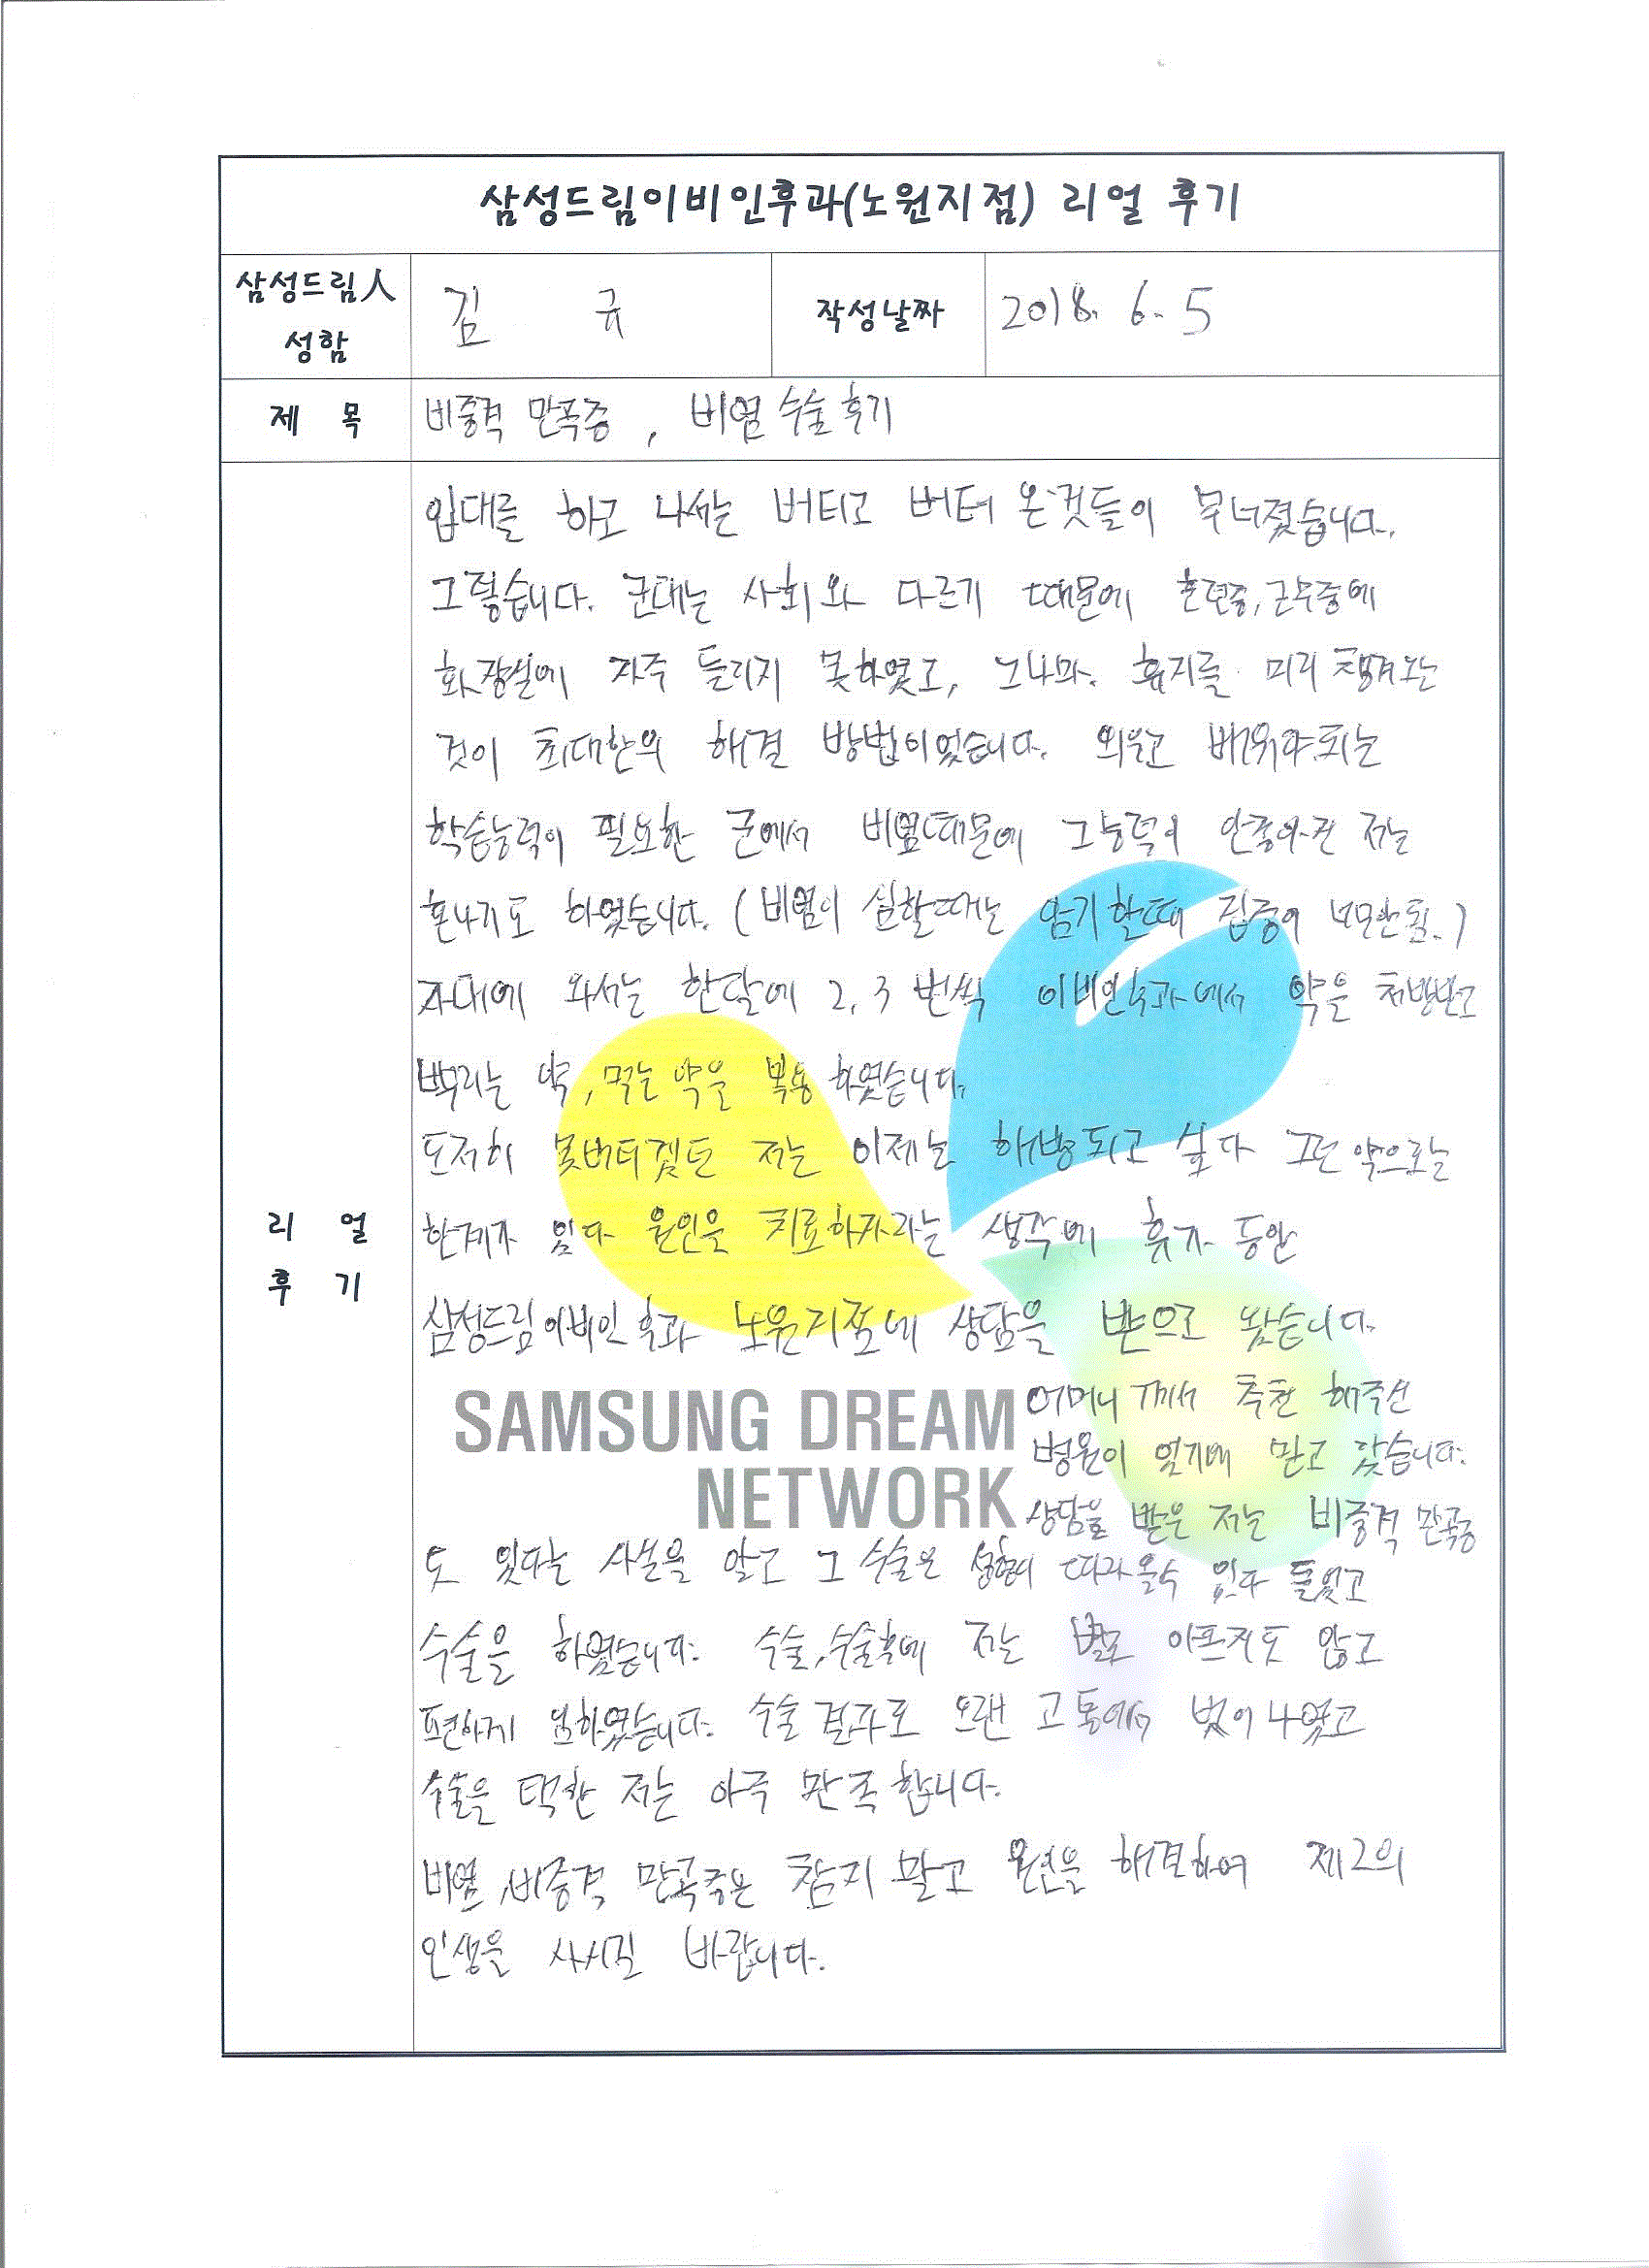 삼성드림이비인후과(노원지점) 리얼 후기
삼성드림人 성함
김 규
작성날짜
2018. 6. 5
제 목
비중격 만곡증, 비염 수술 후기
리 얼
후 기
입대를 하고 나서는 버티고 버텨 온것들이 무너졌습니다.
그렇습니다. 군대는 사회와 다르기 때문에 훈련중, 근무중에
화장실에 자주 들리지 못하였고, 그나마 휴지를 미리 챙겨오는
것이 최대한의 해결 방법이었습니다. 외우고 배워야되는
학습능력이 필요한 군에서 비염때문에 그능력이 안좋아진 저는
혼나기도 하였습니다. (비염이 심할때는 암기할때 집중이 너무안됨.)
자대에 와서는 한달에 2, 3 번씩 이비인후과에서 약을 처방받고
뿌리는 약, 먹는 약을 복용 하였습니다.
도저히 못버티겠던 저는 이제는 해방되고 싶다 그런 약으로는
한계가 있다 원인을 치료하자라는 생각에 휴가 동안
삼성드림이비인후과 노원지점에 상담을 받으로 왔습니다.
SAMSUNG DREAM
NETWORK
어머니 께서 추천 해주신
병원이 였기에 믿고 갔습니다.
상담을 받은 저는 비중격 만곡증
도 있다는 사실을 알고 그 수술은 성형이 따라올수 있다 들었고
수술을 하였습니다. 수술, 수술후에 저는 별로 아프지도 않고
편하게 임하였습니다. 수술 결과로 오랜 고통에서 벗어 나였고
수술을 택한 저는 아주 만족 합니다.
비염, 비중격 만곡증은 참지 말고 원인을 해결하여 제2의
인생을 사시길 바랍니다.